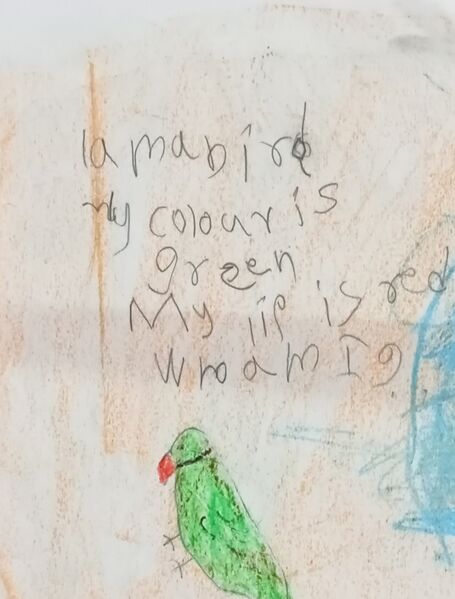 I a m a b i r d
my colour is
green
My lip is red
Who am I?